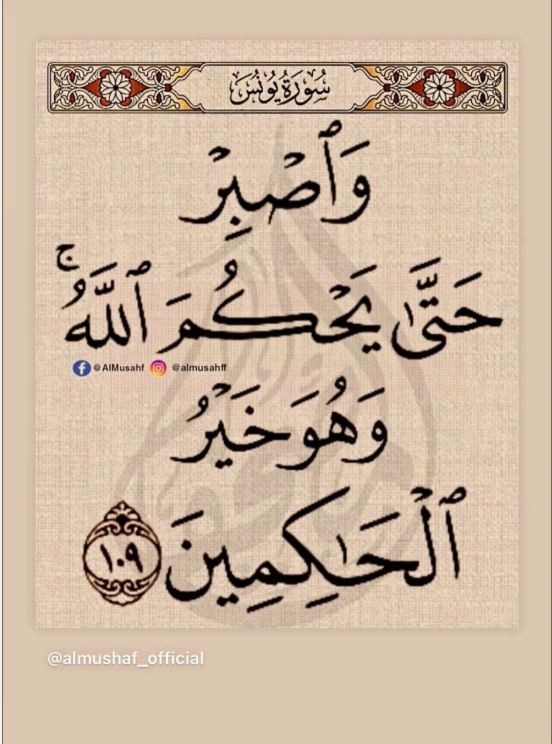 سُورَةُ يُونُسَ
وَٱصْبِرْ
حَتَّىٰ يَحْكُمَ ٱللَّهُ ۚ
@AlMusahf @almusahff
وَهُوَ خَيْرُ
ٱلْحَـٰكِمِينَ ١٠٩
@almushaf_official